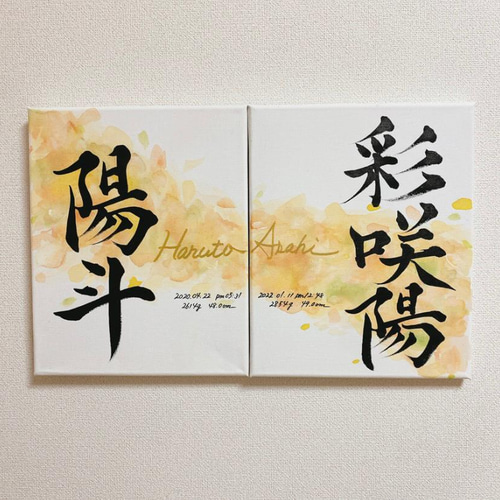 陽斗
Haruto
2020.04.22 pm05:31
2614g 48.0cm
彩咲陽
Asahi
2022.01.11 pm12:48
2854g 49.0cm